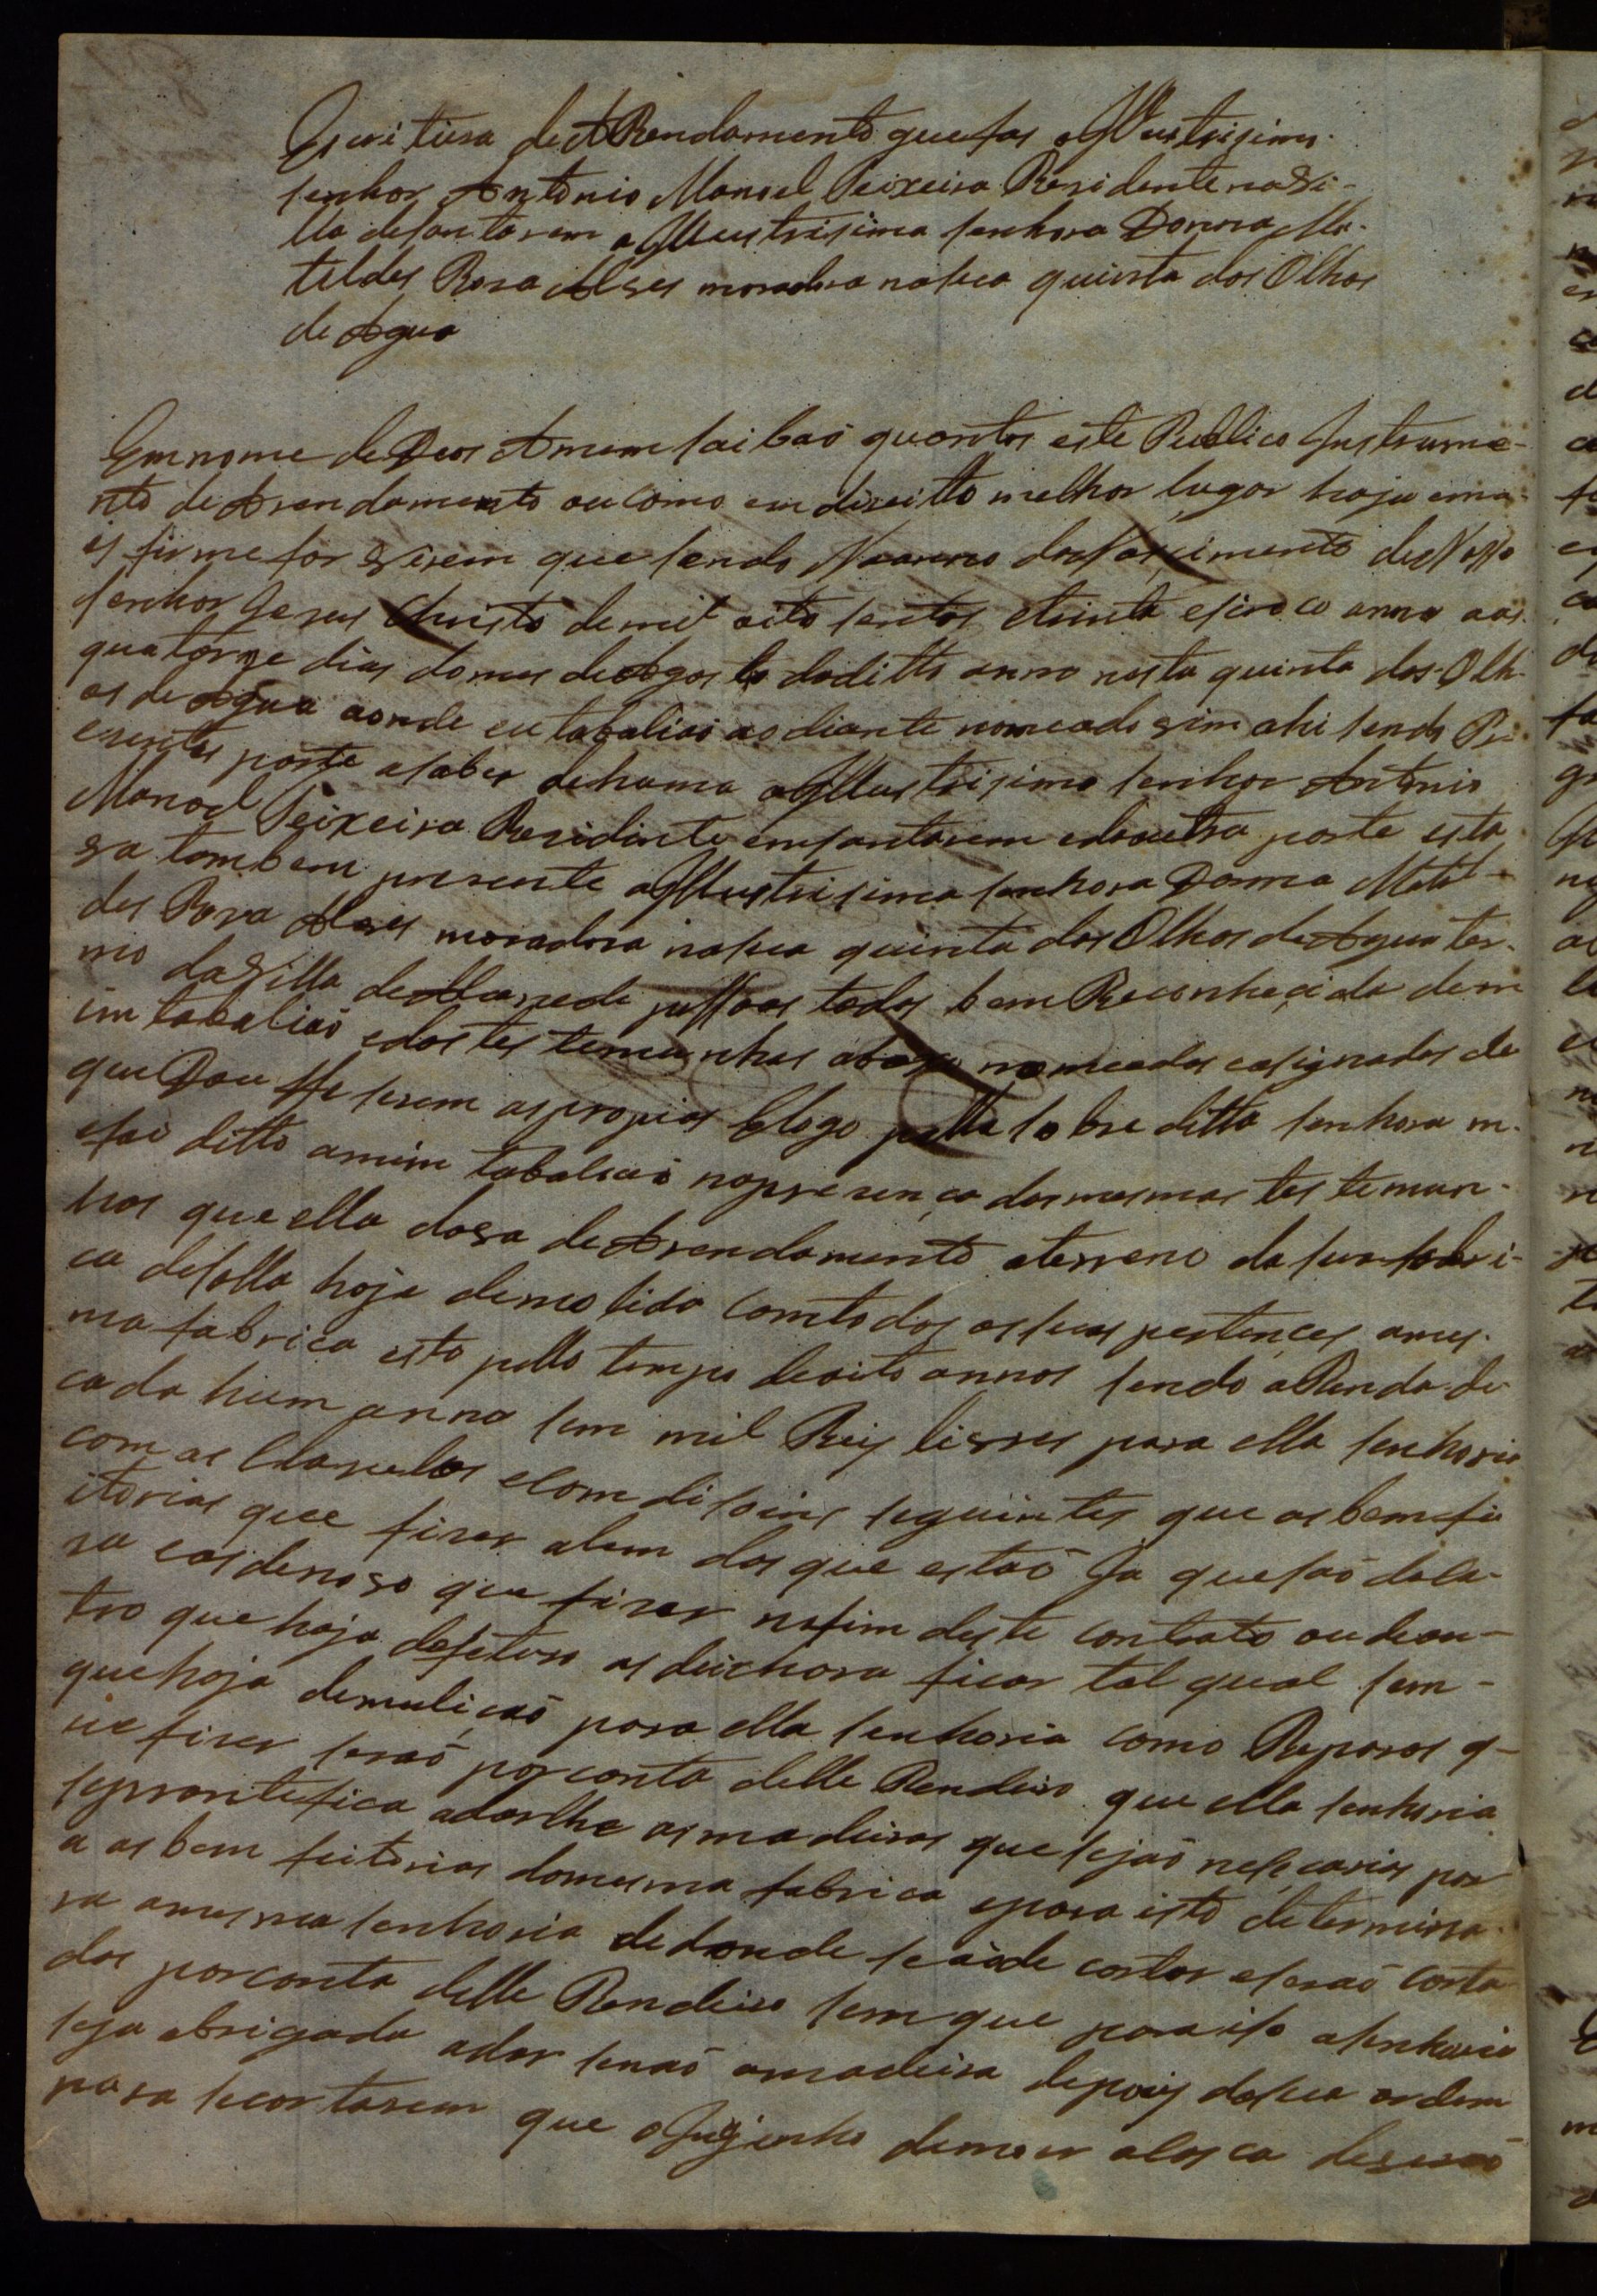 Escritura de ARendamento que fas o Illustrisimo
senhor Antonio Manoel Peixeira Residente na Vi-
lla de santarem a Illustrisima senhora Donna Ma-
tildes Rosa Alves moradora na sua quinta dos Olhos
de Agua
Em nome de Deos Amem saibaõ quantos este Publico Instrume-
nto de Arendamento ou como em direitto melhor lugar haja e ma-
is firme for Virem que sendo No anno do Nascimento de Nosso
senhor Jesus Christo de mil oito sentos e trinta e sinco annos aos
quatorze dias do mes de Agosto do ditto anno nesta quinta dos Olh-
os de Agua aonde eu tabaliaõ ao diante nomeado vim ahi sendo Pr-
ezentes parte a saber de huma o Illustrisimo senhor Antonio
Manoel Peixeira Rezidente em santarem e da outra parte esta-
va tambem presente a Illustrisima senhora Donna Matil-
des Rosa Alves moradora na sua quinta dos Olhos de Agua ter-
mo da Villa de Alcanede pessoas todas bem Reconhecida de m
im tabaliaõ e das testemunhas abaxo nomeadas e asignadas de
que Dou ffe serem as proprias E logo pella sobre ditta senhora m-
e foi ditto a mim tabaliaõ na presença das mesmas testemun-
has que ella dava de Arendamento o terreno da sua fabri-
ca de solla hoje demolida com todos os seus pertençes a mes-
ma fabrica isto pello tempo de oito annos sendo a Renda de
cada hum anno sem mil Reis livres para ella senhoria
com as Clauzulas e Comdisoins seguintes que as bemfe
itorias que fizer alem das que estaõ Ja que saõ de la-
ra e as de novo que fizer no fim deste contrato ou de ou-
tro que haja de futuro as deichara ficar tal qual sem-
que haja demuliçaõ para ella senhoria como Reparos q-
ue fizer seraõ por conta delle Rendeiro que ella senhoria
se prontefica a dar lhe as madeiras que sejaõ nesecarias par
a as bem feitorias da mesma fabrica e para isto determina-
ra a mesma senhoria de donde se aõde cortar e seraõ corta
das por conta delle Rendeiro sem que para iso a senhoria
seja obrigada a dar senaõ a madeira depois da sua ordem
para se cortarem que o Jngenho de moer a casca